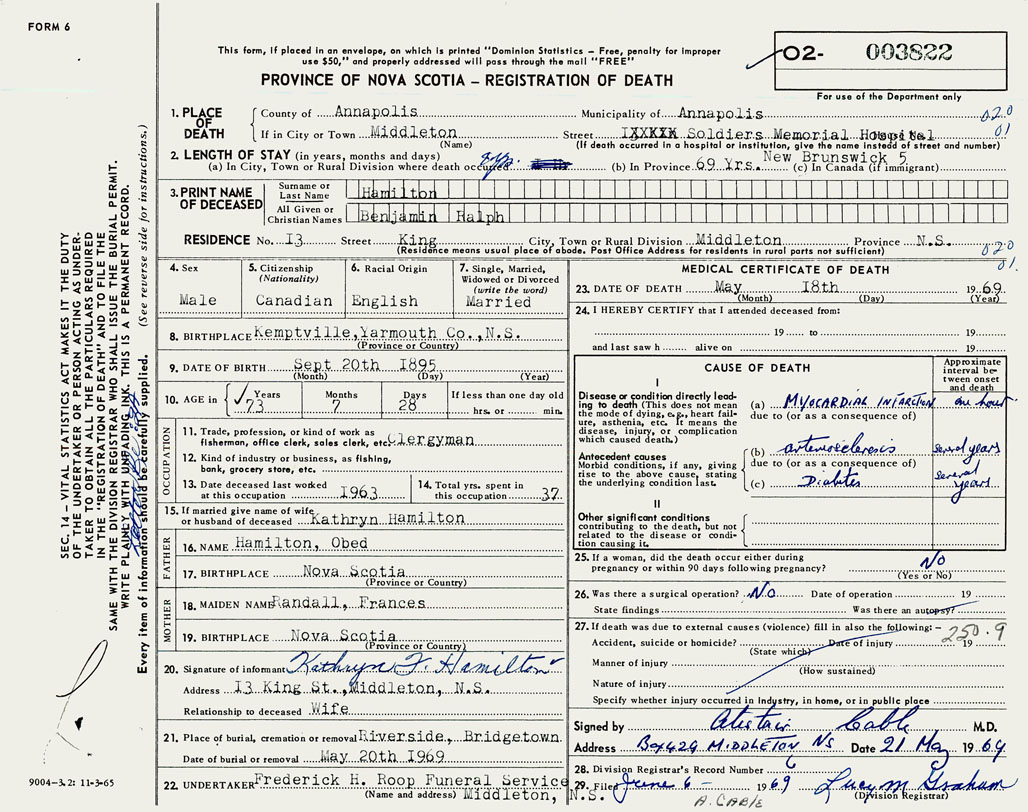 FORM 6
This form, if placed in an envelope, on which is printed "Dominion Statistics – Free, penalty for improper
use $50," and properly addressed will pass through the mail "FREE"
PROVINCE OF NOVA SCOTIA – REGISTRATION OF DEATH
02- 003822
For use of the Department only
1. PLACE OF DEATH
County of Annapolis Municipality of Annapolis 020
If in City or Town Middleton Street IXXKXK Soldiers Memorial Hospital 01
(Name) (If death occurred in a hospital or institution, give the name instead of street and number)
2. LENGTH OF STAY (in years, months and days) New Brunswick 5
(a) In City, Town or Rural Division where death occurred (b) In Province 69 Yrs. (c) In Canada (if immigrant)
3. PRINT NAME OF DECEASED
Surname or Last Name Hamilton
All Given or Christian Names Benjamin Ralph
RESIDENCE No. I3 Street King City, Town or Rural Division Middleton Province N.S.
(Residence means usual place of abode. Post Office Address for residents in rural parts not sufficient) 020
01.
4. Sex
Male
5. Citizenship
(Nationality)
Canadian
6. Racial Origin
English
7. Single, Married,
Widowed or Divorced
(write the word)
Married
8. BIRTHPLACE Kemptville, Yarmouth Co., N.S.
(Province or Country)
9. DATE OF BIRTH Sept 20th I895
(Month) (Day) (Year)
10. AGE in Years Months Days If less than one day old
73 7 28 hrs. or min.
OCCUPATION
11. Trade, profession, or kind of work as
fisherman, office clerk, sales clerk, etc. Clergyman
12. Kind of industry or business, as fishing,
bank, grocery store, etc.
13. Date deceased last worked
at this occupation I963
14. Total yrs. spent in
this occupation 37
15. If married give name of wife
or husband of deceased Kathryn Hamilton
FATHER
16. NAME Hamilton, Obed
17. BIRTHPLACE Nova Scotia
(Province or Country)
MOTHER
18. MAIDEN NAME Randall, Frances
19. BIRTHPLACE Nova Scotia
(Province or Country)
20. Signature of informant Kathryn F. Hamilton
Address I3 King St., Middleton, N.S.
Relationship to deceased Wife
21. Place of burial, cremation or removal Riverside, Bridgetown
Date of burial or removal May 20th I969
22. UNDERTAKER Frederick H. Roop Funeral Service
(Name and address) Middleton, N.S.
MEDICAL CERTIFICATE OF DEATH
23. DATE OF DEATH May I8th 1969
(Month) (Day) (Year)
24. I HEREBY CERTIFY that I attended deceased from:
19 to 19
and last saw h alive on 19
CAUSE OF DEATH
Approximate
interval be-
tween onset
and death
I
Disease or condition directly lead-
ing to death (This does not mean
the mode of dying, e.g., heart fail-
ure, asthenia, etc. It means the
disease, injury, or complication
which caused death.)
(a) MYOCARDIAL INFARCTION one hour
due to (or as a consequence of)
Antecedent causes
Morbid conditions, if any, giving
rise to the above cause, stating
the underlying condition last.
(b) arteriosclerosis several years
due to (or as a consequence of)
(c) Diabetes several years
II
Other significant conditions
contributing to the death, but not
related to the disease or condi-
tion causing it.
25. If a woman, did the death occur either during
pregnancy or within 90 days following pregnancy? NO
(Yes or No)
26. Was there a surgical operation? NO Date of operation 19
State findings Was there an autopsy?
27. If death was due to external causes (violence) fill in also the following: – 250.9
Accident, suicide or homicide? Date of injury 19
(State which)
Manner of injury
(How sustained)
Nature of injury
Specify whether injury occurred in Industry, in home, or in public place
Signed by Alistair Cable M.D.
Address Box 429 MIDDLETON NS Date 21 May 1969
28. Division Registrar's Record Number 6
29. Filed June 6 – 1969 Lucy M Graham
(Division Registrar)
A. CABLE
SEC. 14 – VITAL STATISTICS ACT MAKES IT THE DUTY
OF THE UNDERTAKER OR PERSON ACTING AS UNDER-
TAKER TO OBTAIN ALL THE PARTICULARS REQUIRED
IN THE "REGISTRATION OF DEATH" AND TO FILE THE
SAME WITH THE DIVISION REGISTRAR WHO SHALL ISSUE THE BURIAL PERMIT.
WRITE PLAINLY WITH UNFADING INK. THIS IS A PERMANENT RECORD.
Every item of information should be carefully supplied. (See reverse side for instructions.)
9004-3.2: 11-3-65